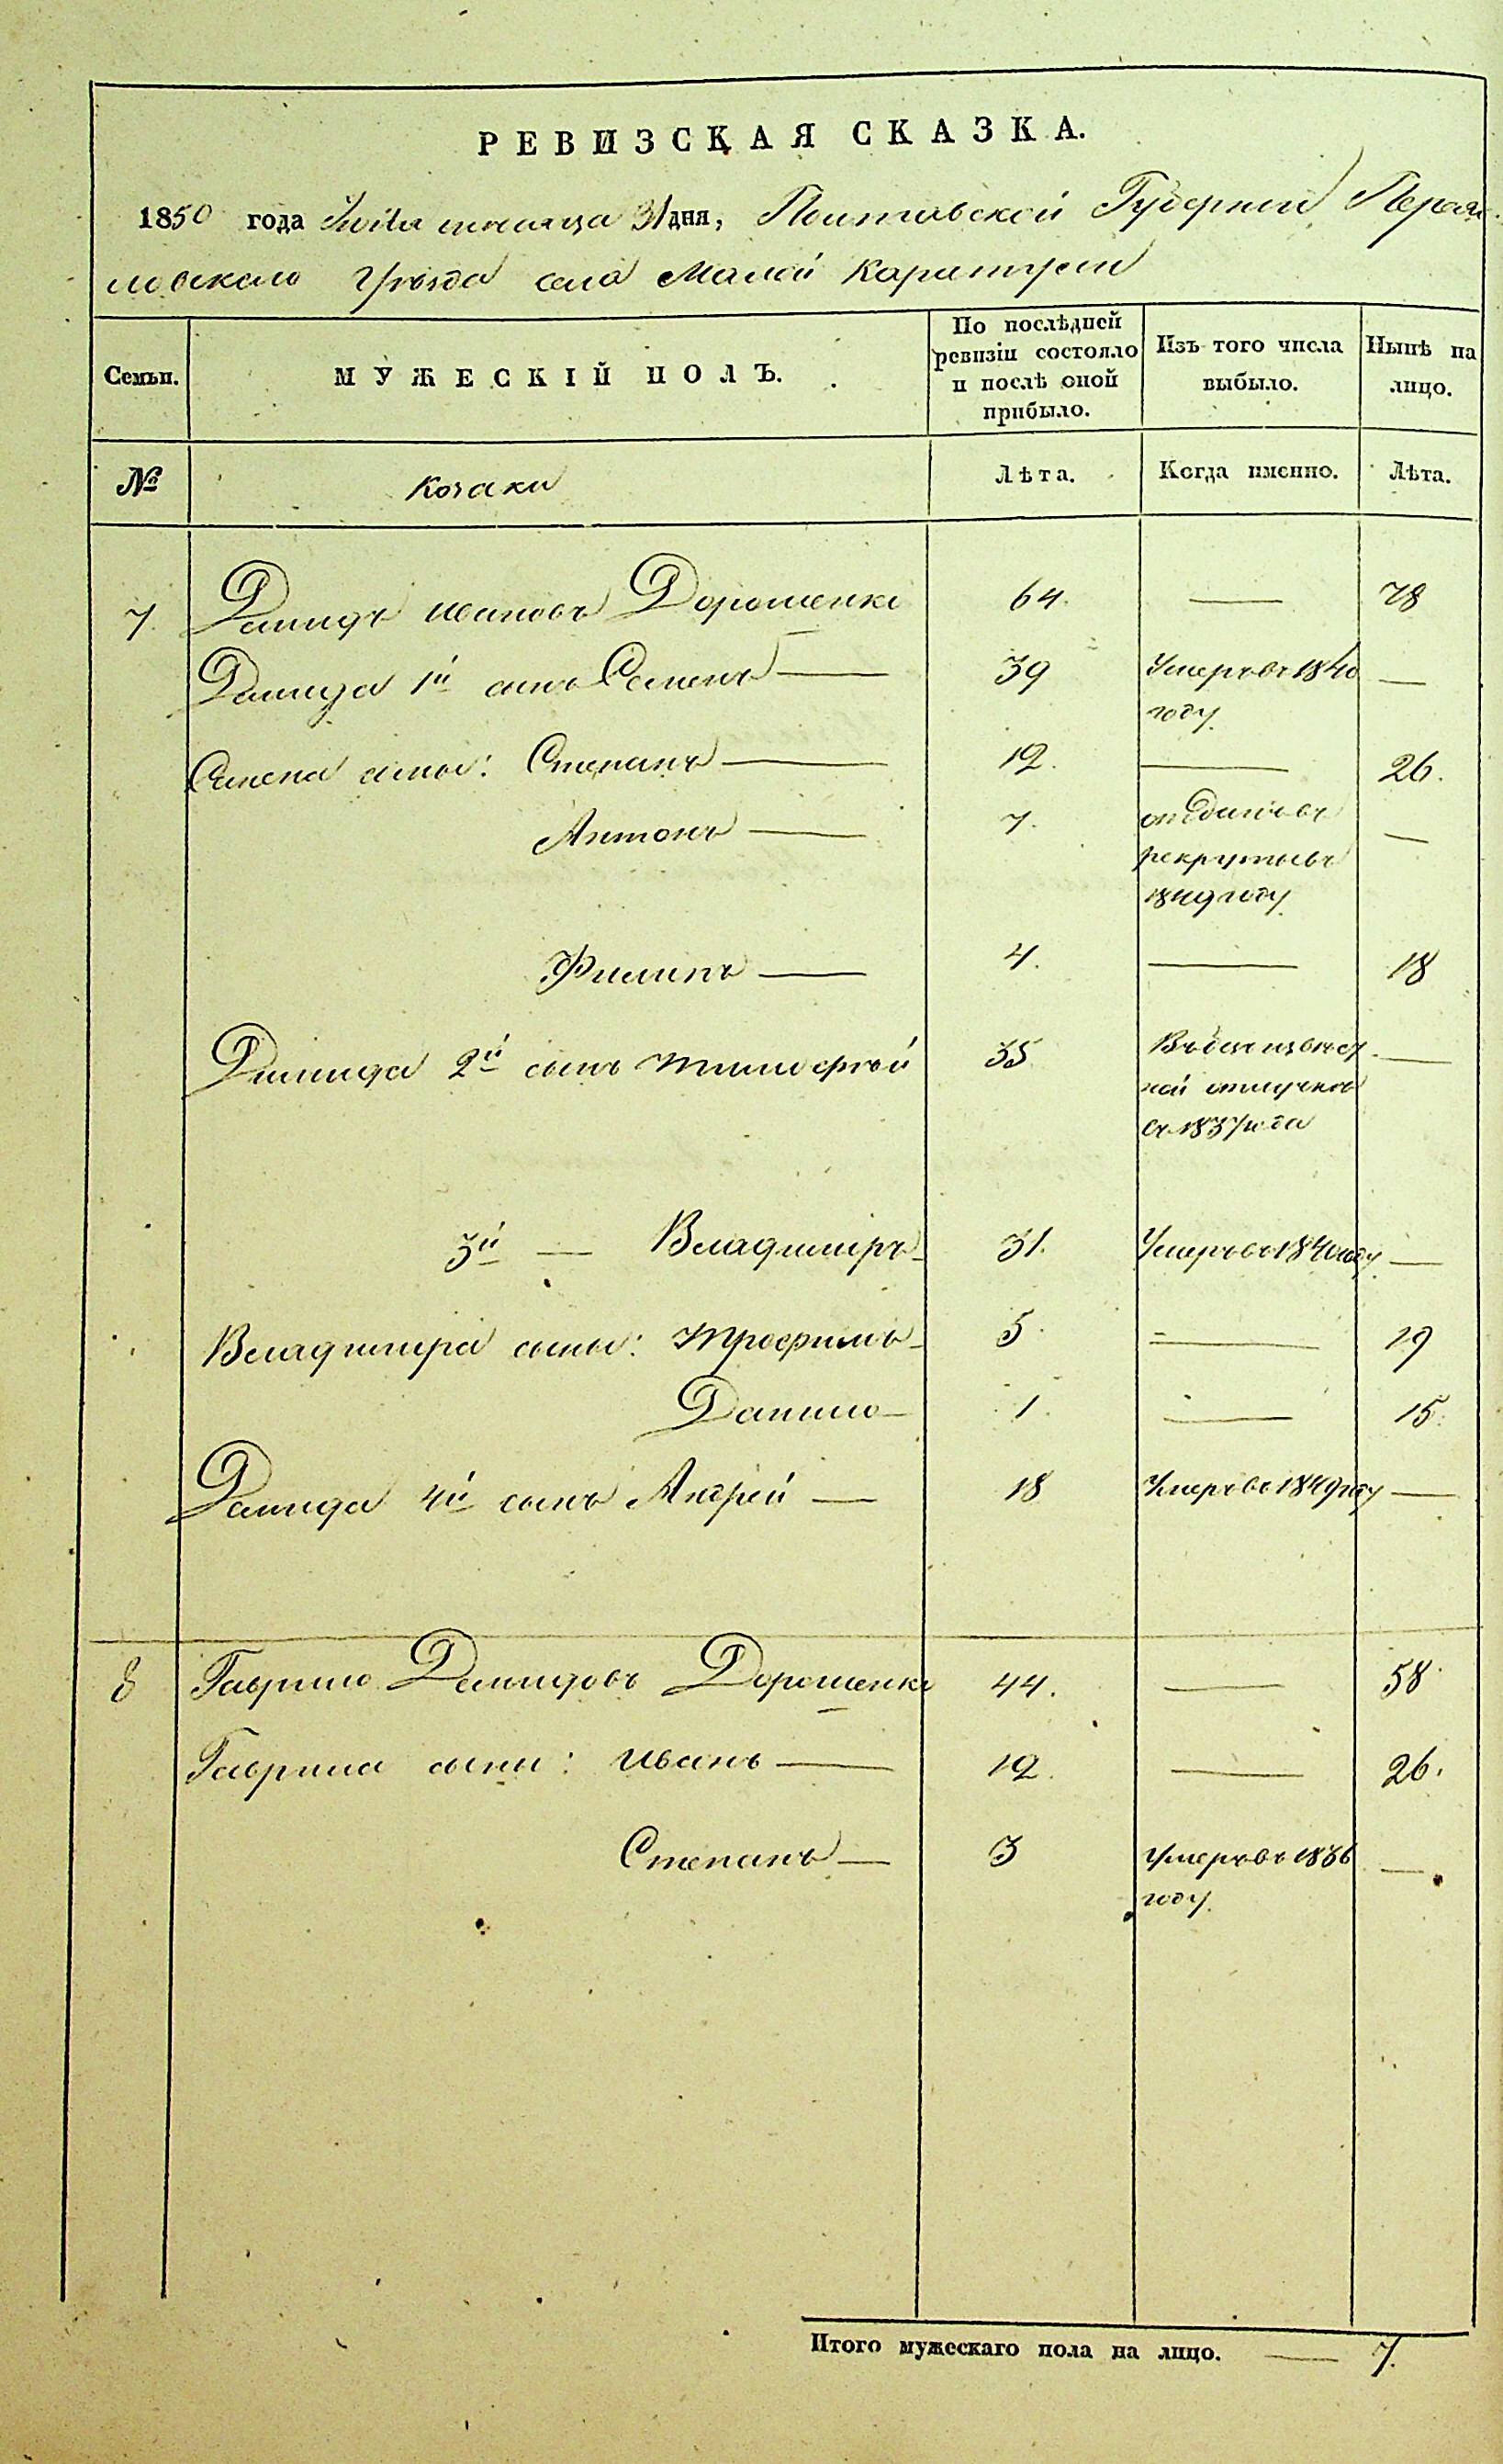 РЕВИЗСКАЯ СКАЗКА.
1850 года Июля месяца 31 дня, Полтавской Губернии Переяс-
ловскаго Уѣзда села Малой Каратули
Семьи. МУЖЕСКІЙ ПОЛЪ. По послѣдней ревизіи состояло и послѣ оной прибыло. Изъ того числа выбыло. Нынѣ на лицо.
№ Козаки Лѣта. Когда именно. Лѣта.
7. Демидъ Ивановъ Дорошенко 64. — 78
Демида 1й сынъ Семенъ — 39 Умеръ въ 1840 —
году.
Семена сыны: Степанъ — 12. — 26.
Антонъ — 7. отданъ въ —
рекруты въ
1849 году
Филипъ — 4. — 18
Демида 2й сынъ Тимофей 35 Въ безызвѣст- —
ной отлучкѣ
съ 1837 года
3й — Владимиръ — 31. Умеръ въ 1840 году —
Владимира сыны: Трофимъ — 5. — 19
Данило — 1. — 15.
Демида 4й сынъ Андрей — 18 Умеръ въ 1849 году —
8 Гаврило Демидовъ Дорошенко 44. — 58
Гаврила сыны: Иванъ — 12. — 26.
Степанъ — 3 Умеръ въ 1836 —
году.
Итого мужескаго пола на лицо. — 7.